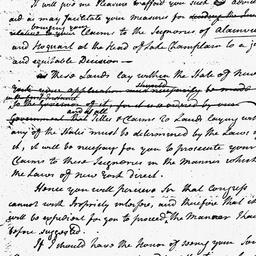 It will give me Pleasure to afford you such advice
and as may facilitate your measure for
bringing your
relative to your Claims to the Seignories of Alainville
and Hoquart at the Head of Lake Champlain to a
and equitable Decision —
These Lands lay within the State of New
York your application should necessarily be made
to the Government of it, for it is
Government that Titles & Claims to Lands laying
any of the States must be determined by the Laws of
it, it will be necessary for you to prosecute your
Claims to these Seignories in the Manner which
the Laws of New York direct.
Hence you will perceive Sir that Congress
cannot with Propriety interfere, and therefore that it
will be expedient for you to proceed in the Manner
before suggested.
If I should have the Honor of seeing your